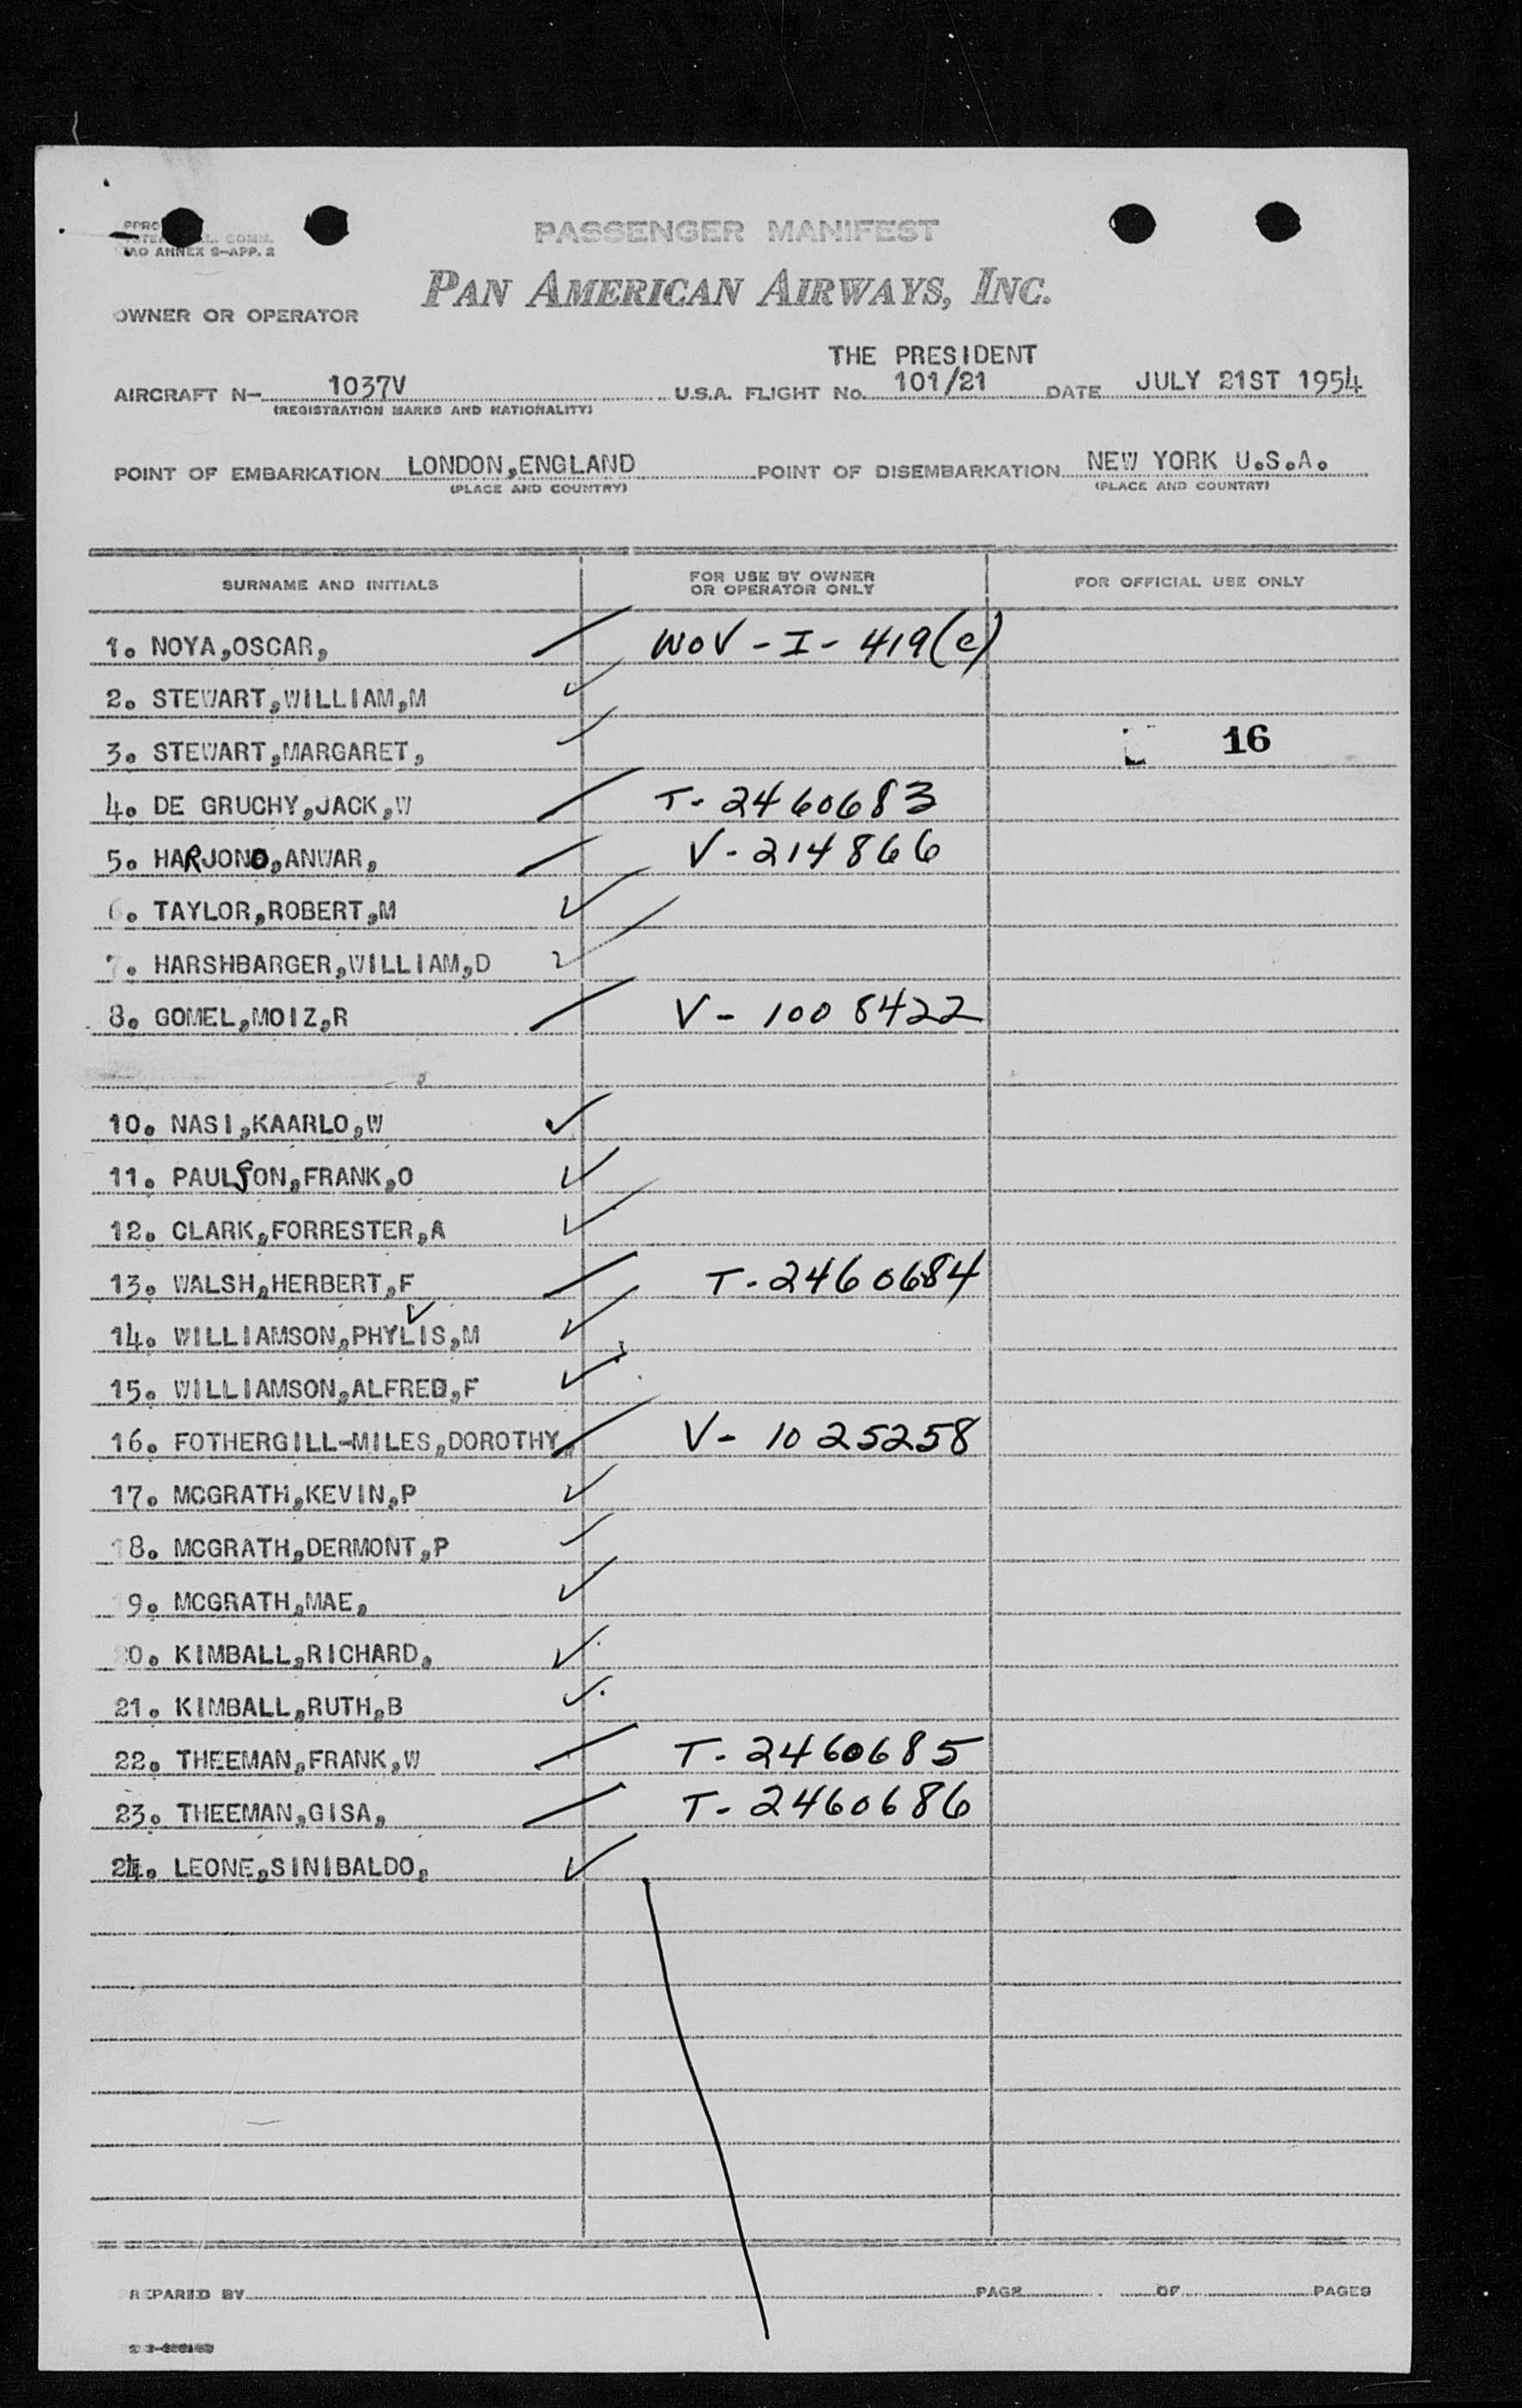 PASSENGER MANIFEST
COMM.
ANNEX 9-APP. 2
PAN AMERICAN AIRWAYS, INC.
OWNER OR OPERATOR
THE PRESIDENT
AIRCRAFT N- 1037V U.S.A. FLIGHT NO. 101/21 DATE JULY 21ST 1954
(REGISTRATION MARKS AND NATIONALITY)
POINT OF EMBARKATION LONDON,ENGLAND POINT OF DISEMBARKATION NEW YORK U.S.A.
(PLACE AND COUNTRY) (PLACE AND COUNTRY)
SURNAME AND INITIALS FOR USE BY OWNER OR OPERATOR ONLY FOR OFFICIAL USE ONLY
1. NOYA,OSCAR, WOV-I-419(c)
2. STEWART,WILLIAM,M
3. STEWART,MARGARET, 16
4. DE GRUCHY,JACK,W T-2460683
5. HARJONO,ANWAR, V-214866
6. TAYLOR,ROBERT,M
7. HARSHBARGER,WILLIAM,D
8. GOMEL,MOIZ,R V-1008422
10. NASI,KAARLO,W
11. PAULSON,FRANK,O
12. CLARK,FORRESTER,A
13. WALSH,HERBERT,F T-2460684
14. WILLIAMSON,PHYLIS,M
15. WILLIAMSON,ALFRED,F
16. FOTHERGILL-MILES,DOROTHY, V-1025258
17. MCGRATH,KEVIN,P
18. MCGRATH,DERMONT,P
9. MCGRATH,MAE,
0. KIMBALL,RICHARD,
21. KIMBALL,RUTH,B
22. THEEMAN,FRANK,W T-2460685
23. THEEMAN,GISA, T-2460686
24. LEONE,SINIBALDO,
REPARED BY PAGE OF PAGES